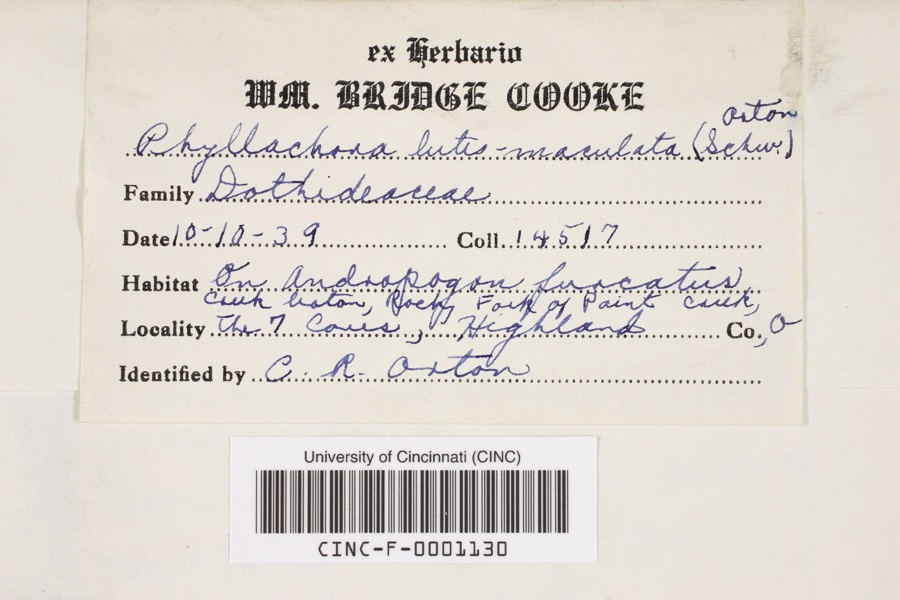 ex Herbario
WM. BRIDGE COOKE
Phyllachora luteo-maculata (Schw.) Orton
Family Dothideaceae
Date 10-10-39 Coll. 14517
Habitat On Andropogon furcatus,
Rocky Fork of Paint Creek,
Locality The 7 Caves, Highland Co., O
Identified by C. R. Orton
University of Cincinnati (CINC)
CINC-F-0001130